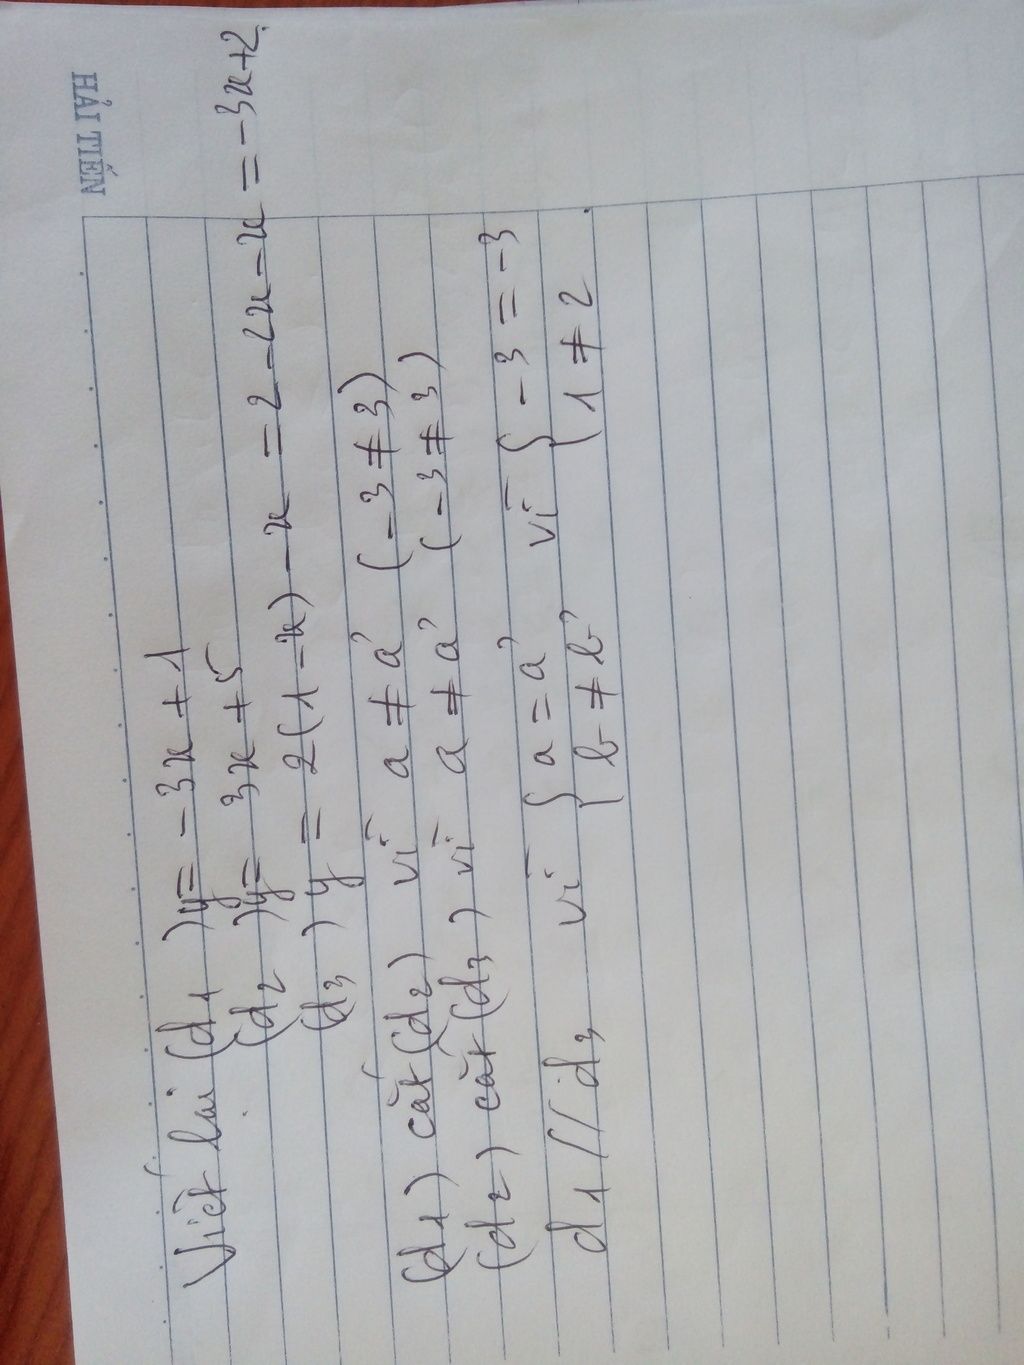 HẢI TIẾN
Viết lại (d1) y = -3x + 1
(d2) y = 3x + 5
(d3) y = 2(1 - x) - x = 2 - 2x - x = -3x + 2.
(d1) cắt (d2) vì a ≠ a' (-3 ≠ 3)
(d2) cắt (d3) vì a ≠ a' (-3 ≠ 3)
d1 // d3 vì { a = a' vì { -3 = -3
{ b ≠ b' { 1 ≠ 2